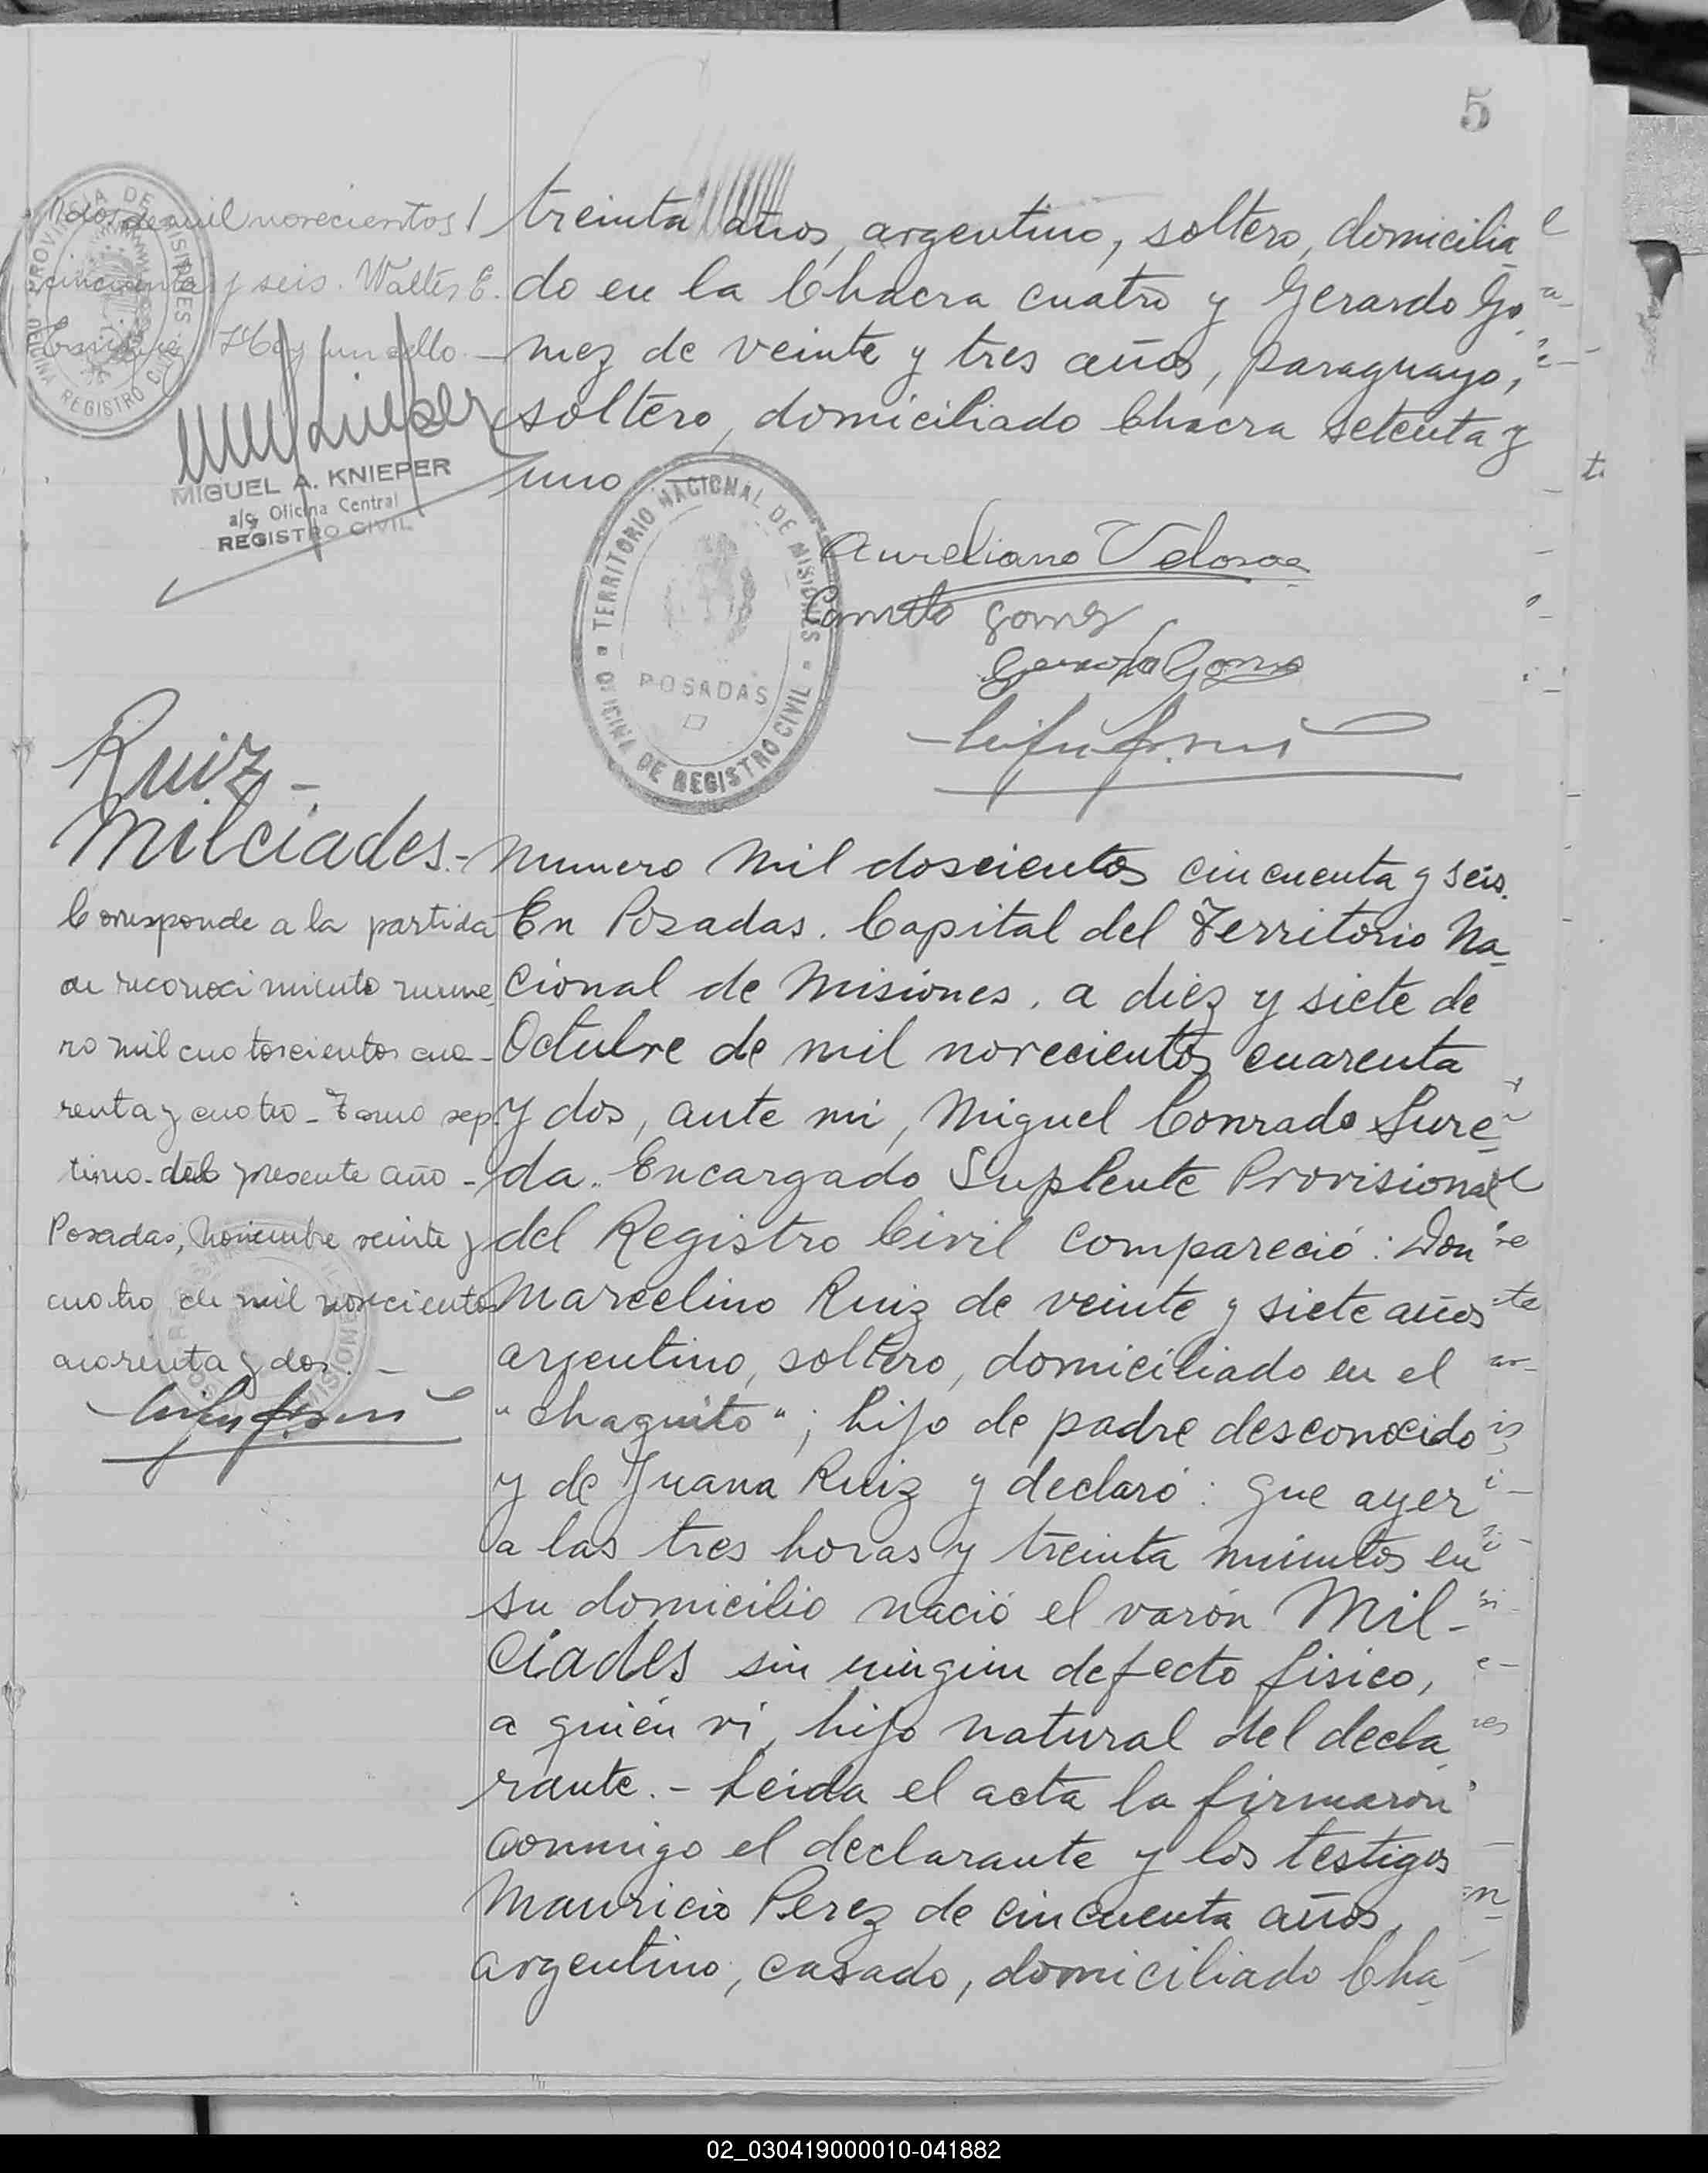 5
dos de mil novecientos
cincuenta y seis. Walter E.
Hay un sello.-
PROVINCIA DE MISIONES
OFICINA REGISTRO CIVIL
MIGUEL A. KNIEPER
a/c Oficina Central
REGISTRO CIVIL
treinta años, argentino, soltero, domicilia
do en la Chacra cuatro y Gerardo Go
mez de veinte y tres años, paraguayo,
soltero, domiciliado Chacra setenta y
uno
TERRITORIO NACIONAL DE MISIONES
POSADAS
OFICINA DE REGISTRO CIVIL
Aureliano Velosoe
Camilo Gomez
Gerardo Gomez
Ruiz -
Milciades.-
Corresponde a la partida
de reconocimiento nume
ro mil cuatoscientos cua-
renta y cuatro - Tomo sep-
timo del presente año -
Posadas, Noviembre veinte y
cuatro de mil novecientos
cuarenta y dos. -
Numero mil doscientos cincuenta y seis.
En Posadas. Capital del Territorio Na
cional de Misiones. a diez y siete de
Octubre de mil novecientos cuarenta
y dos, ante mi, Miguel Conrado Sure
da. Encargado Suplente Provisional
del Registro Civil compareció: Don
Marcelino Ruiz de veinte y siete años
argentino, soltero, domiciliado en el
"Chaquito"; hijo de padre desconocido
y de Juana Ruiz y declaró: que ayer
a las tres horas y treinta minutos en
su domicilio nació el varón Mil-
ciades sin ningun defecto fisico,
a quién vi, hijo natural del decla
rante.- Leida el acta la firmaron
conmigo el declarante y los testigos
Mauricio Perez de cincuenta años,
argentino, casado, domiciliado Cha
02_030419000010-041882